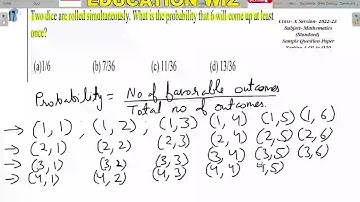 EDUCATION WIZ
Class- X Session- 2022-23
Subject- Mathematics
(Standard)
Sample Question Paper
Two dice are rolled simultaneously. What is the probability that 6 will come up at least
once?
(a)1/6 (b) 7/36 (c) 11/36 (d) 13/36
Probability = No of favorable outcomes
Total no of outcomes.
→ (1, 1) , (1, 2) , (1, 3) (1, 4) (1, 5) (1, 6)
→ (2, 1) (2, 2) (2, 3) (2, 4) (2, 5) (2, 6)
→ (3, 1) (3, 2) (3, 3) (3, 4) (3, 5) (3, 6)
→ (4, 1) (4, 2) (4, 3) (4, 4) (4, 5)